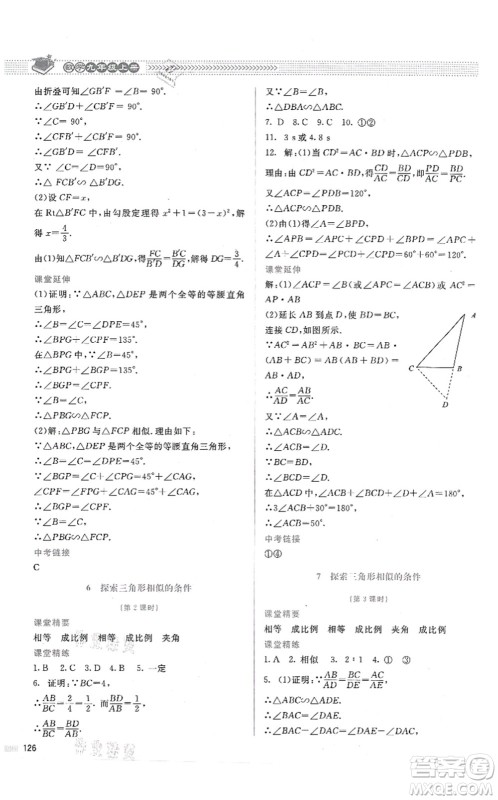 数学九年级上册
由折叠可知∠GB′F＝∠B＝90°.
∴∠GB′D＋∠CB′F＝90°.
又∵∠C＝90°,
∴∠CFB′＋∠CB′F＝90°.
∴∠CFB′＝∠GB′D.
∴△FCB′∽△B′DG.
(2)设CF＝x,
在Rt△B′CF中,由勾股定理得x²＋1＝(3－x)².
∴x＝4/3.
由(1)知△FCB′∽△B′DG,得FC/B′D＝B′C/DG.∴DG＝3/2.
课堂延伸
(1)证明:∵△ABC,△DEP是两个全等的等腰直角
三角形,
∴∠B＝∠C＝∠DPE＝45°.
∴∠BPG＋∠CPF＝135°.
∴∠BGP＋∠BPG＝135°.
∴∠BGP＝∠CPF.
(2)解:△PBG与△FCP相似.理由如下:
∵△ABC,△DEP是两个全等的等腰直角三角形,
∴∠B＝∠C＝∠DPE＝45°.
又∵∠BGP＝∠C＋∠CPG＝45°＋∠CPG,
∠CPF＝∠DPE＋∠CPG＝45°＋∠CPG,
∴∠BGP＝∠CPF.
∴△PBG∽△FCP.
中考链接
C
6 探索三角形相似的条件
(第2课时)
课堂精要
相等 成比例 成比例 夹角
课堂精练
1.B 2.D 3.A 4.B 5.一定
6.证明:∵BC＝4,
∴AB/BC＝2/4＝1/2.而BD/AB＝1/2,
∴AB/BC＝BD/AB.
126
又∵∠B＝∠B,
∴△DBA∽△ABC.
7.D 8.C 9.C 10.①②
11.3 s或4.8 s
12.解:(1)当CD²＝AC·BD时,△ACP∽△PDB,
理由:由CD²＝AC·BD,得CD/AC＝BD/CD,即PD/AC＝BD/PC.
又∵∠ACP＝∠PDB＝120°,
∴△ACP∽△PDB.
(2)由(1)得∠A＝∠DPB.
∴∠APB＝∠APC＋∠CPD＋∠DPB＝∠APC
＋∠A＋∠CPD＝∠PCD＋∠CPD＝60°＋60°＝120°.
课堂延伸
解:(1)∠ACP＝∠ABC,∠APC＝∠ACB,AC²＝
AP·AB
(2)延长AB到点D,使BD＝BC,
连接CD,如图所示.
∵AC²＝AB²＋AB·BC＝AB·
(AB＋BC)＝AB·(AB＋BD)＝
AB·AD,
∴AC/AD＝AB/AC.
又∵∠A＝∠A,
∴△ACB∽△ADC.
∴∠ACB＝∠D.
∵BC＝BD,
∴∠BCD＝∠D.
在△ACD中,∵∠ACB＋∠BCD＋∠D＋∠A＝180°,
∴3∠ACB＋∠A＝180°.
∵∠A＝60°,
∴∠ACB＝40°.
中考链接
①④
A
C
B
D
7 探索三角形相似的条件
(第3课时)
课堂精要
相等 成比例 相等 成比例 夹角 成比例
课堂精练
1.A 2.相似 3.2∶1 4.C
5.(1)证明:∵AB/AD＝BC/DE＝AC/AE,
∴△ABC∽△ADE.
∴∠BAC＝∠DAE.